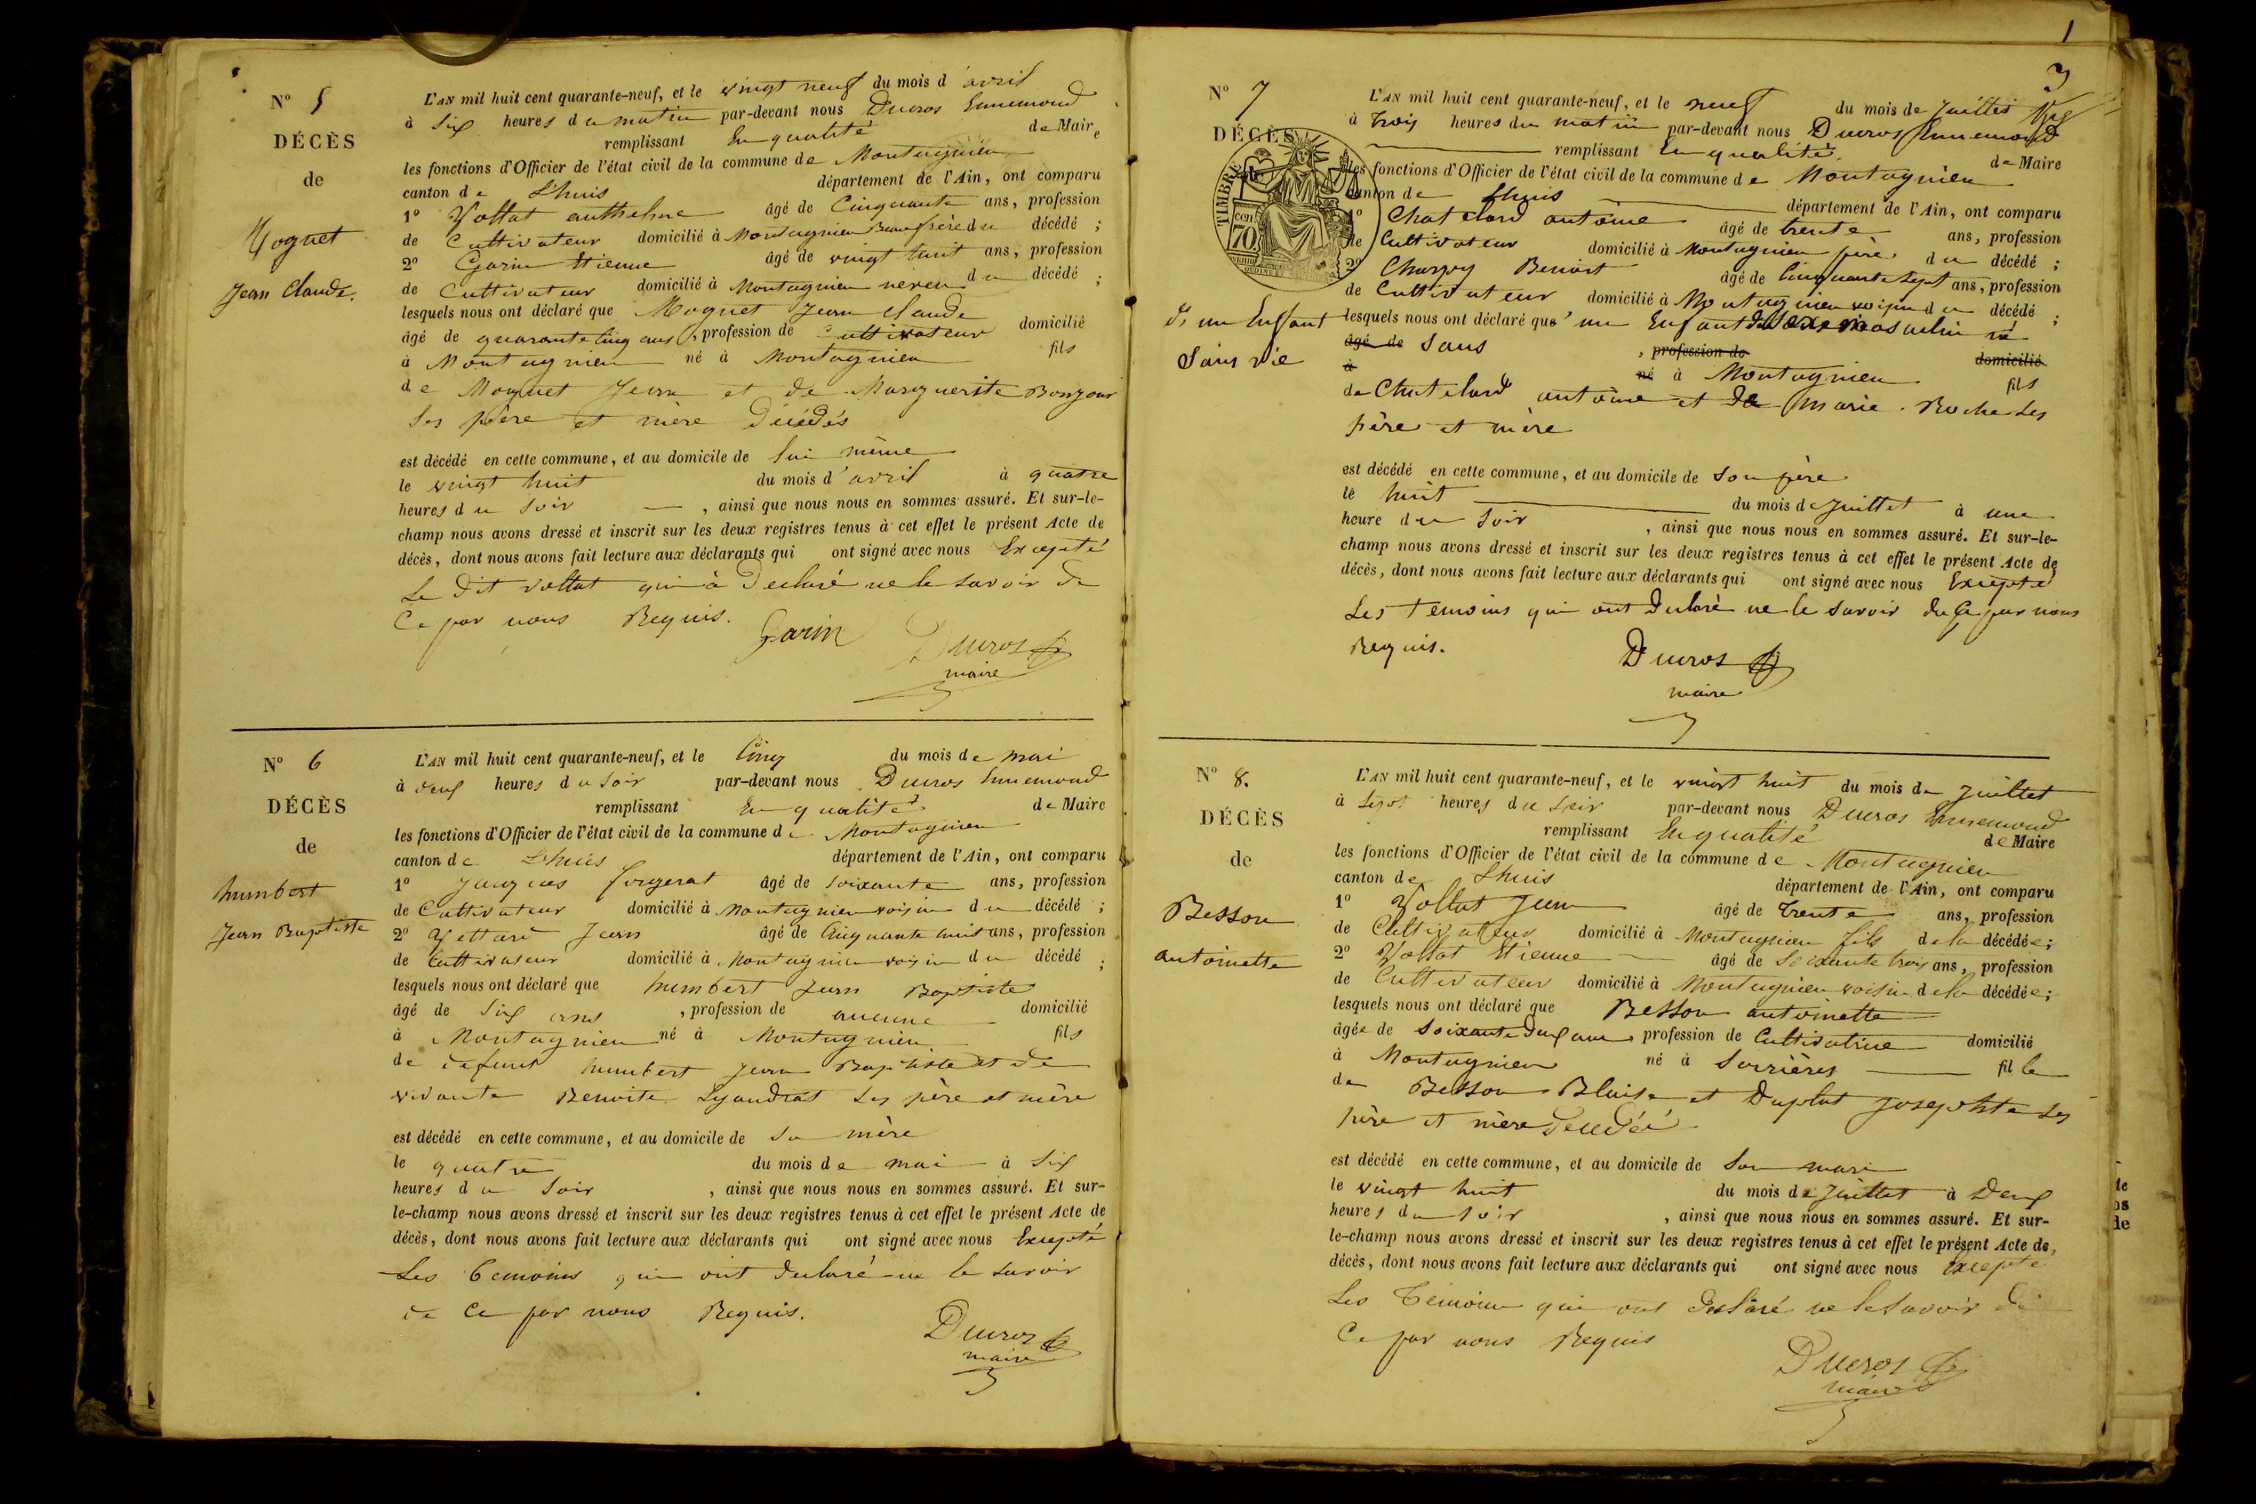 N° 5
DÉCÈS
de
Moquet
Jean Claude.
L'AN mil huit cent quarante-neuf, et le vingt neuf du mois d'avril
à six heures du matin par-devant nous Ducros Ennemond
remplissant En qualité de Maire
les fonctions d'Officier de l'état civil de la commune de Montagnieu
canton de Lhuis département de l'Ain, ont comparu
1° Vollat anthelme âgé de Cinquante ans, profession
de Cultivateur domicilié à Montagnieu Beaufrère du décédé ;
2° Garin Etienne âgé de vingt huit ans, profession
de Cultivateur domicilié à Montagnieu neveu du décédé ;
lesquels nous ont déclaré que Moquet Jean Claude
âgé de quarante Cinq ans, profession de Cultivateur domicilié
à Montagnieu né à Montagnieu fils
de Moquet Jean et de Marguerite Bonjour
ses père et mère Décédés
est décédé en cette commune, et au domicile de lui même
le vingt huit du mois d'avril à quatre
heures du soir, ainsi que nous nous en sommes assuré. Et sur-le-
champ nous avons dressé et inscrit sur les deux registres tenus à cet effet le présent Acte de
décès, dont nous avons fait lecture aux déclarants qui ont signé avec nous Excepté
Le dit vollat qui à Déclaré ne le savoir de
Ce par nous Requis.
Garin Ducros
maire
N° 6
DÉCÈS
de
humbert
Jean Baptiste
L'AN mil huit cent quarante-neuf, et le Cinq du mois de mai
à deux heures du soir par-devant nous Ducros Ennemond
remplissant En qualité de Maire
les fonctions d'Officier de l'état civil de la commune de Montagnieu
canton de Lhuis département de l'Ain, ont comparu
1° Jacques âgé de soixante ans, profession
de Cultivateur domicilié à Montagnieu voisin du décédé ;
2° Jean âgé de Cinquante ans, profession
de Cultivateur domicilié à Montagnieu voisin du décédé ;
lesquels nous ont déclaré que humbert Jean Baptiste
âgé de Six ans, profession de aucune domicilié
à Montagnieu né à Montagnieu fils
de défunt humbert Jean Baptiste et de
vivante Benoite ses père et mère
est décédé en cette commune, et au domicile de sa mère
le quatre du mois de mai à Six
heures du soir, ainsi que nous nous en sommes assuré. Et sur-
le-champ nous avons dressé et inscrit sur les deux registres tenus à cet effet le présent Acte de
décès, dont nous avons fait lecture aux déclarants qui ont signé avec nous Excepté
Les témoins qui ont déclaré ne le savoir
de Ce par nous Requis.
Ducros
maire
1
3
N° 7
DÉCÈS
TIMBRE
cen
70
d'un Enfant
Sans vie
L'AN mil huit cent quarante-neuf, et le neuf du mois de Juillet
à trois heures du matin par-devant nous Ducros Ennemond
remplissant En qualité de Maire
les fonctions d'Officier de l'état civil de la commune de Montagnieu
canton de Lhuis département de l'Ain, ont comparu
1° Chatelard antoine âgé de trente ans, profession
de Cultivateur domicilié à Montagnieu père du décédé ;
2° Benoit âgé de Cinquante sept ans, profession
de Cultivateur domicilié à Montagnieu voisin du décédé ;
lesquels nous ont déclaré qu'un Enfant du sexe masculin né
âgé de sans, profession de domicilié
à né à Montagnieu fils
de Chatelard antoine et de Marie Roche ses
père et mère
est décédé en cette commune, et au domicile de son père
le huit du mois de Juillet à une
heure du soir, ainsi que nous nous en sommes assuré. Et sur-le-
champ nous avons dressé et inscrit sur les deux registres tenus à cet effet le présent Acte de
décès, dont nous avons fait lecture aux déclarants qui ont signé avec nous Excepté
Les témoins qui ont déclaré ne le savoir de Ce par nous
Requis.
Ducros
maire
N° 8.
DÉCÈS
de
Besson
antoinette
L'AN mil huit cent quarante-neuf, et le vingt huit du mois de Juillet
à sept heures du soir par-devant nous Ducros Ennemond
remplissant En qualité de Maire
les fonctions d'Officier de l'état civil de la commune de Montagnieu
canton de Lhuis département de l'Ain, ont comparu
1° Vollat Jean âgé de trente ans, profession
de Cultivateur domicilié à Montagnieu fils de la décédée ;
2° Vollat Etienne âgé de soixante trois ans, profession
de Cultivateur domicilié à Montagnieu voisin de la décédée ;
lesquels nous ont déclaré que Besson antoinette
âgée de soixante deux ans profession de Cultivatrice domicilié
à Montagnieu né à Serrières fille
de Besson Blaise et Duplat Josephte ses
père et mère Décédés
est décédé en cette commune, et au domicile de son mari
le vingt huit du mois de Juillet à Deux
heures du soir, ainsi que nous nous en sommes assuré. Et sur-
le-champ nous avons dressé et inscrit sur les deux registres tenus à cet effet le présent Acte de
décès, dont nous avons fait lecture aux déclarants qui ont signé avec nous Excepté
Les Témoins qui ont déclaré ne le savoir de
Ce par nous Requis
Ducros
maire